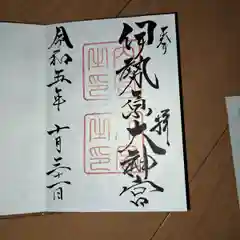 奉拝
伊勢原大神宮
令和五年十月三十一日